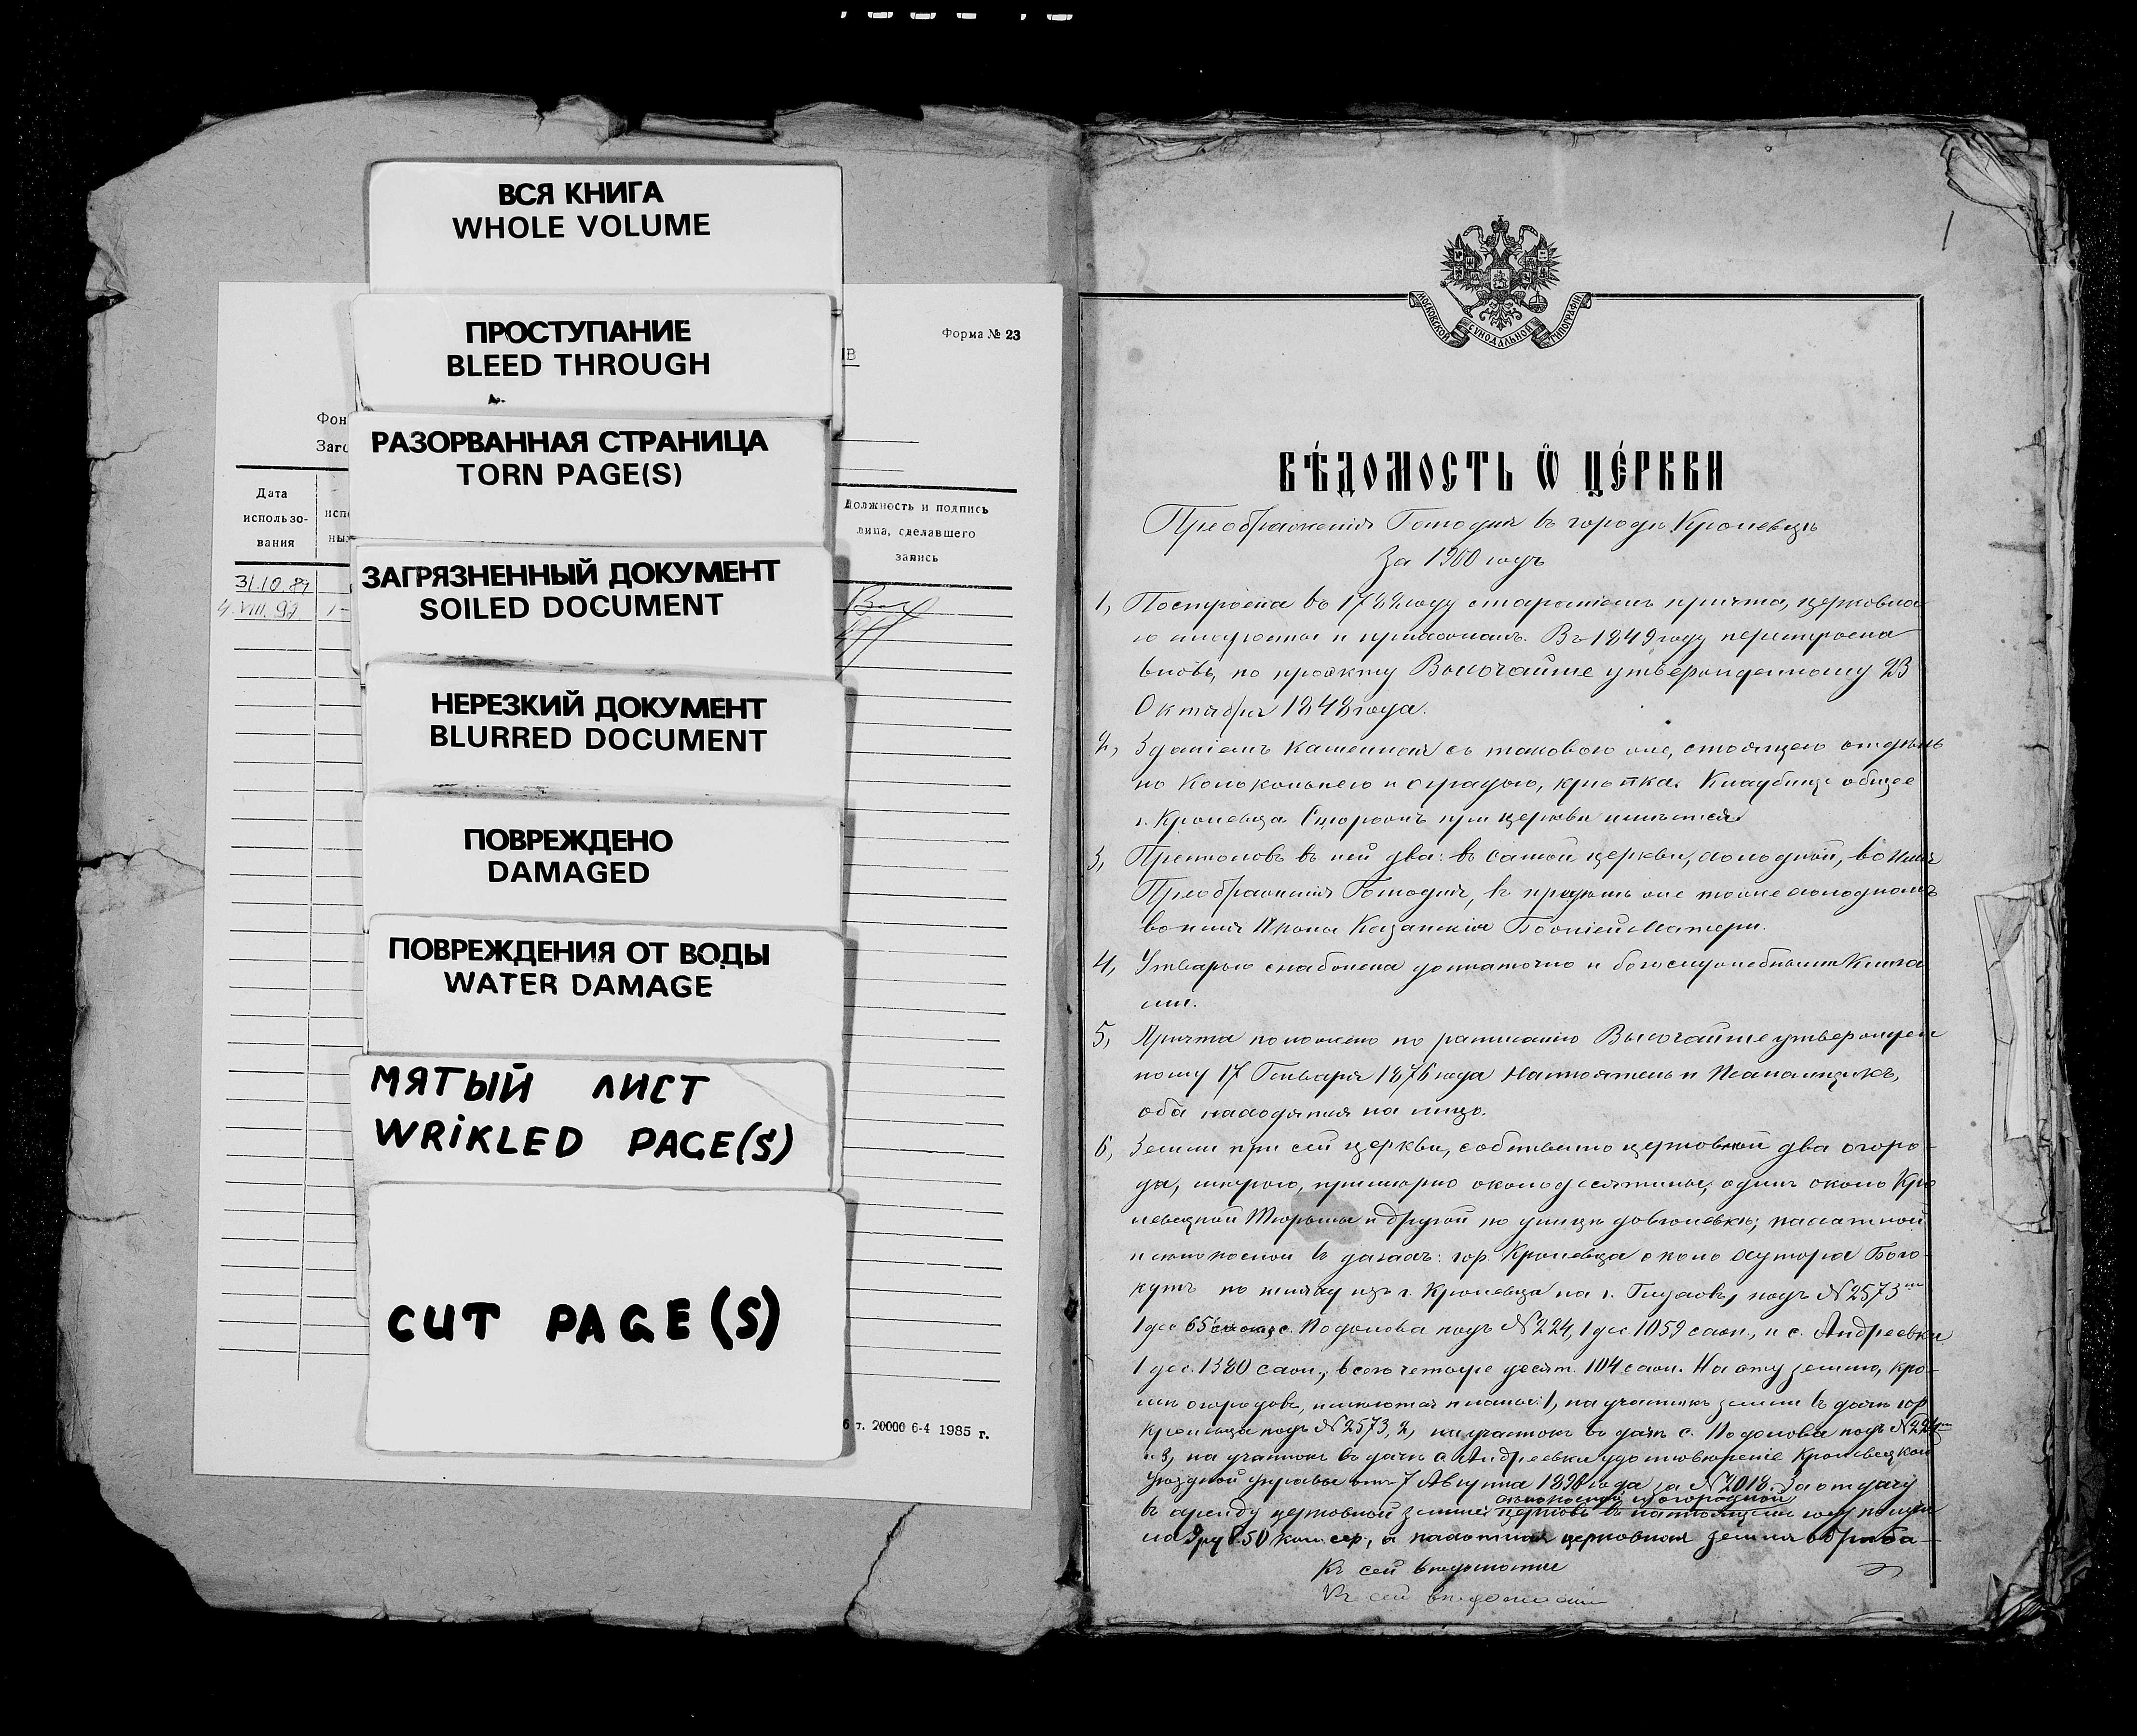 ВСЯ КНИГА
WHOLE VOLUME
ПРОСТУПАНИЕ
BLEED THROUGH
РАЗОРВАННАЯ СТРАНИЦА
TORN PAGE(S)
ЗАГРЯЗНЕННЫЙ ДОКУМЕНТ
SOILED DOCUMENT
НЕРЕЗКИЙ ДОКУМЕНТ
BLURRED DOCUMENT
ПОВРЕЖДЕНО
DAMAGED
ПОВРЕЖДЕНИЯ ОТ ВОДЫ
WATER DAMAGE
МЯТЫЙ ЛИСТ
WRIKLED PAGE(S)
CUT PAGE(S)
Форма № 23
Фон
Заго
Дата
использо-
вания
Должность и подпись
лица, сделавшего
запись
31.10.89
т. 20000 6-4 1985 г.
1
МОСКОВСКОЙ СѴНОДАЛЬНОЙ ТИПОГРАФІИ
ВѢДОМОСТЬ Ѿ ЦЕ́РКВИ
Преображенія Господня въ городѣ Кролевцѣ
За 1900 годъ
1, Построена въ году стараніемъ причта, церковна
го старосты и прихожанъ. Въ 1849 году перестроена
вновь, по проэкту Высочайше утвержденному 23
Октября 1848 года.
2, Зданіемъ каменная съ таковою же, стоящею отдѣль
но колокольнею и оградою, крѣпка. Кладбище общее
г. Кролевца при церкви имѣется
3, Престоловъ въ ней два: въ самой церкви, холодной, во имя
Преображенія Господня, въ придѣлѣ же тоже холодномъ
во имя Иконы Казанскія Божіей Матери.
4, Утварью снабжена достаточно и богослужебными Книга
ми.
5, Причта положено по росписанію Высочайше утвержден
ному 17 Генваря 1876 года Настоятель и Псаломщикъ,
оба находятся на лицо.
6, Земли при сей церкви, собственно церковной два огоро-
да, мѣрою, примѣрно около десятины, одинъ около Кро
левецкой Тюрьмы и другой по улицѣ ; пахатной
и сѣнокосной въ дачахъ: гор. Кролевца около хутора Бого-
по шляху изъ г. Кролевца на г. Глуховъ, подъ №2573
1 дес. 65 с. Подолова подъ №224, 1 дес. 1059 саж., и с. Андреевки
1 дес. 1380 саж., всего четыре десят. 104 саж. На эту землю, кро-
мѣ огородовъ, имѣются планы: 1, на участокъ земли въ дачѣ гор
Кролевца подъ №2573, 2, на участокъ въ дачѣ с. Подолова подъ №224
и 3, на участокъ въ дачѣ с. Андреевки удостовѣреніе Кролевецкой
Уѣздной Управы отъ 7 Августа года за №2018. За отдачу
сѣнокосной и огородной
въ аренду церковной земли въ настоящемъ году получе
но 50 коп. сер., а пахатная церковная земля обраба-
Къ сей вѣдомости
Къ сей вѣдомости